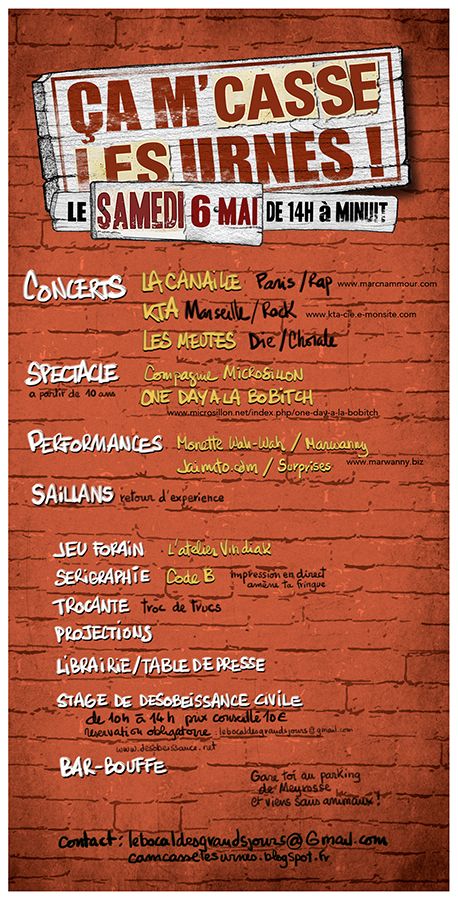 ÇA M'CASSE
LES URNES !
LE SAMEDI 6 MAI DE 14H à MINUIT
CONCERTS LA CANAILLE Paris/Rap www.marcnammour.com
KTA Marseille/Rock www.kta-cie.e-monsite.com
LES MEUTES Die/Chorale
SPECTACLE Compagnie MICROSILLON
a partir de 10 ans ONE DAY A LA BOBITCH
www.microsillon.net/index.php/one-day-a-la-bobitch
PERFORMANCES Monette Wah-Wah / Marwanny
/ Surprises www.marwanny.biz
SAILLANS retour d'experience
JEU FORAIN L'atelier Vindiak
SERIGRAPHIE Code B impression en direct
amène ta fringue
TROCANTE troc de trucs
PROJECTIONS
LIBRAIRIE/TABLE DE PRESSE
STAGE DE DESOBEISSANCE CIVILE
de 10h à 14h prix conseillé 10€
reservation obligatoire lebocaldesgrandsjours@gmail.com
www.desobeissance.net
BAR-BOUFFE Gare toi au parking
de Meyrosse
et viens sans animaux !
contact: lebocaldesgrandsjours@Gmail.com
camcasselesurnes.blogspot.fr